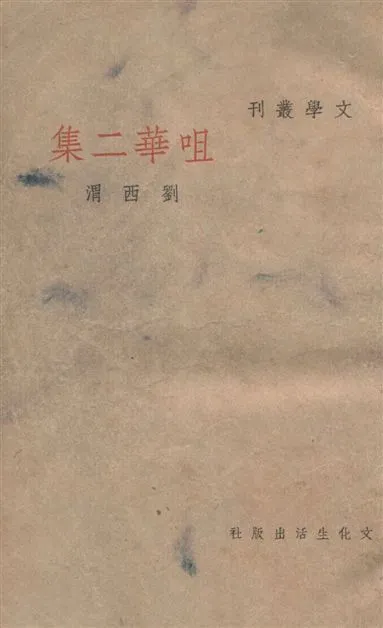 文學叢刊
咀華二集
劉西渭
文化生活出版社